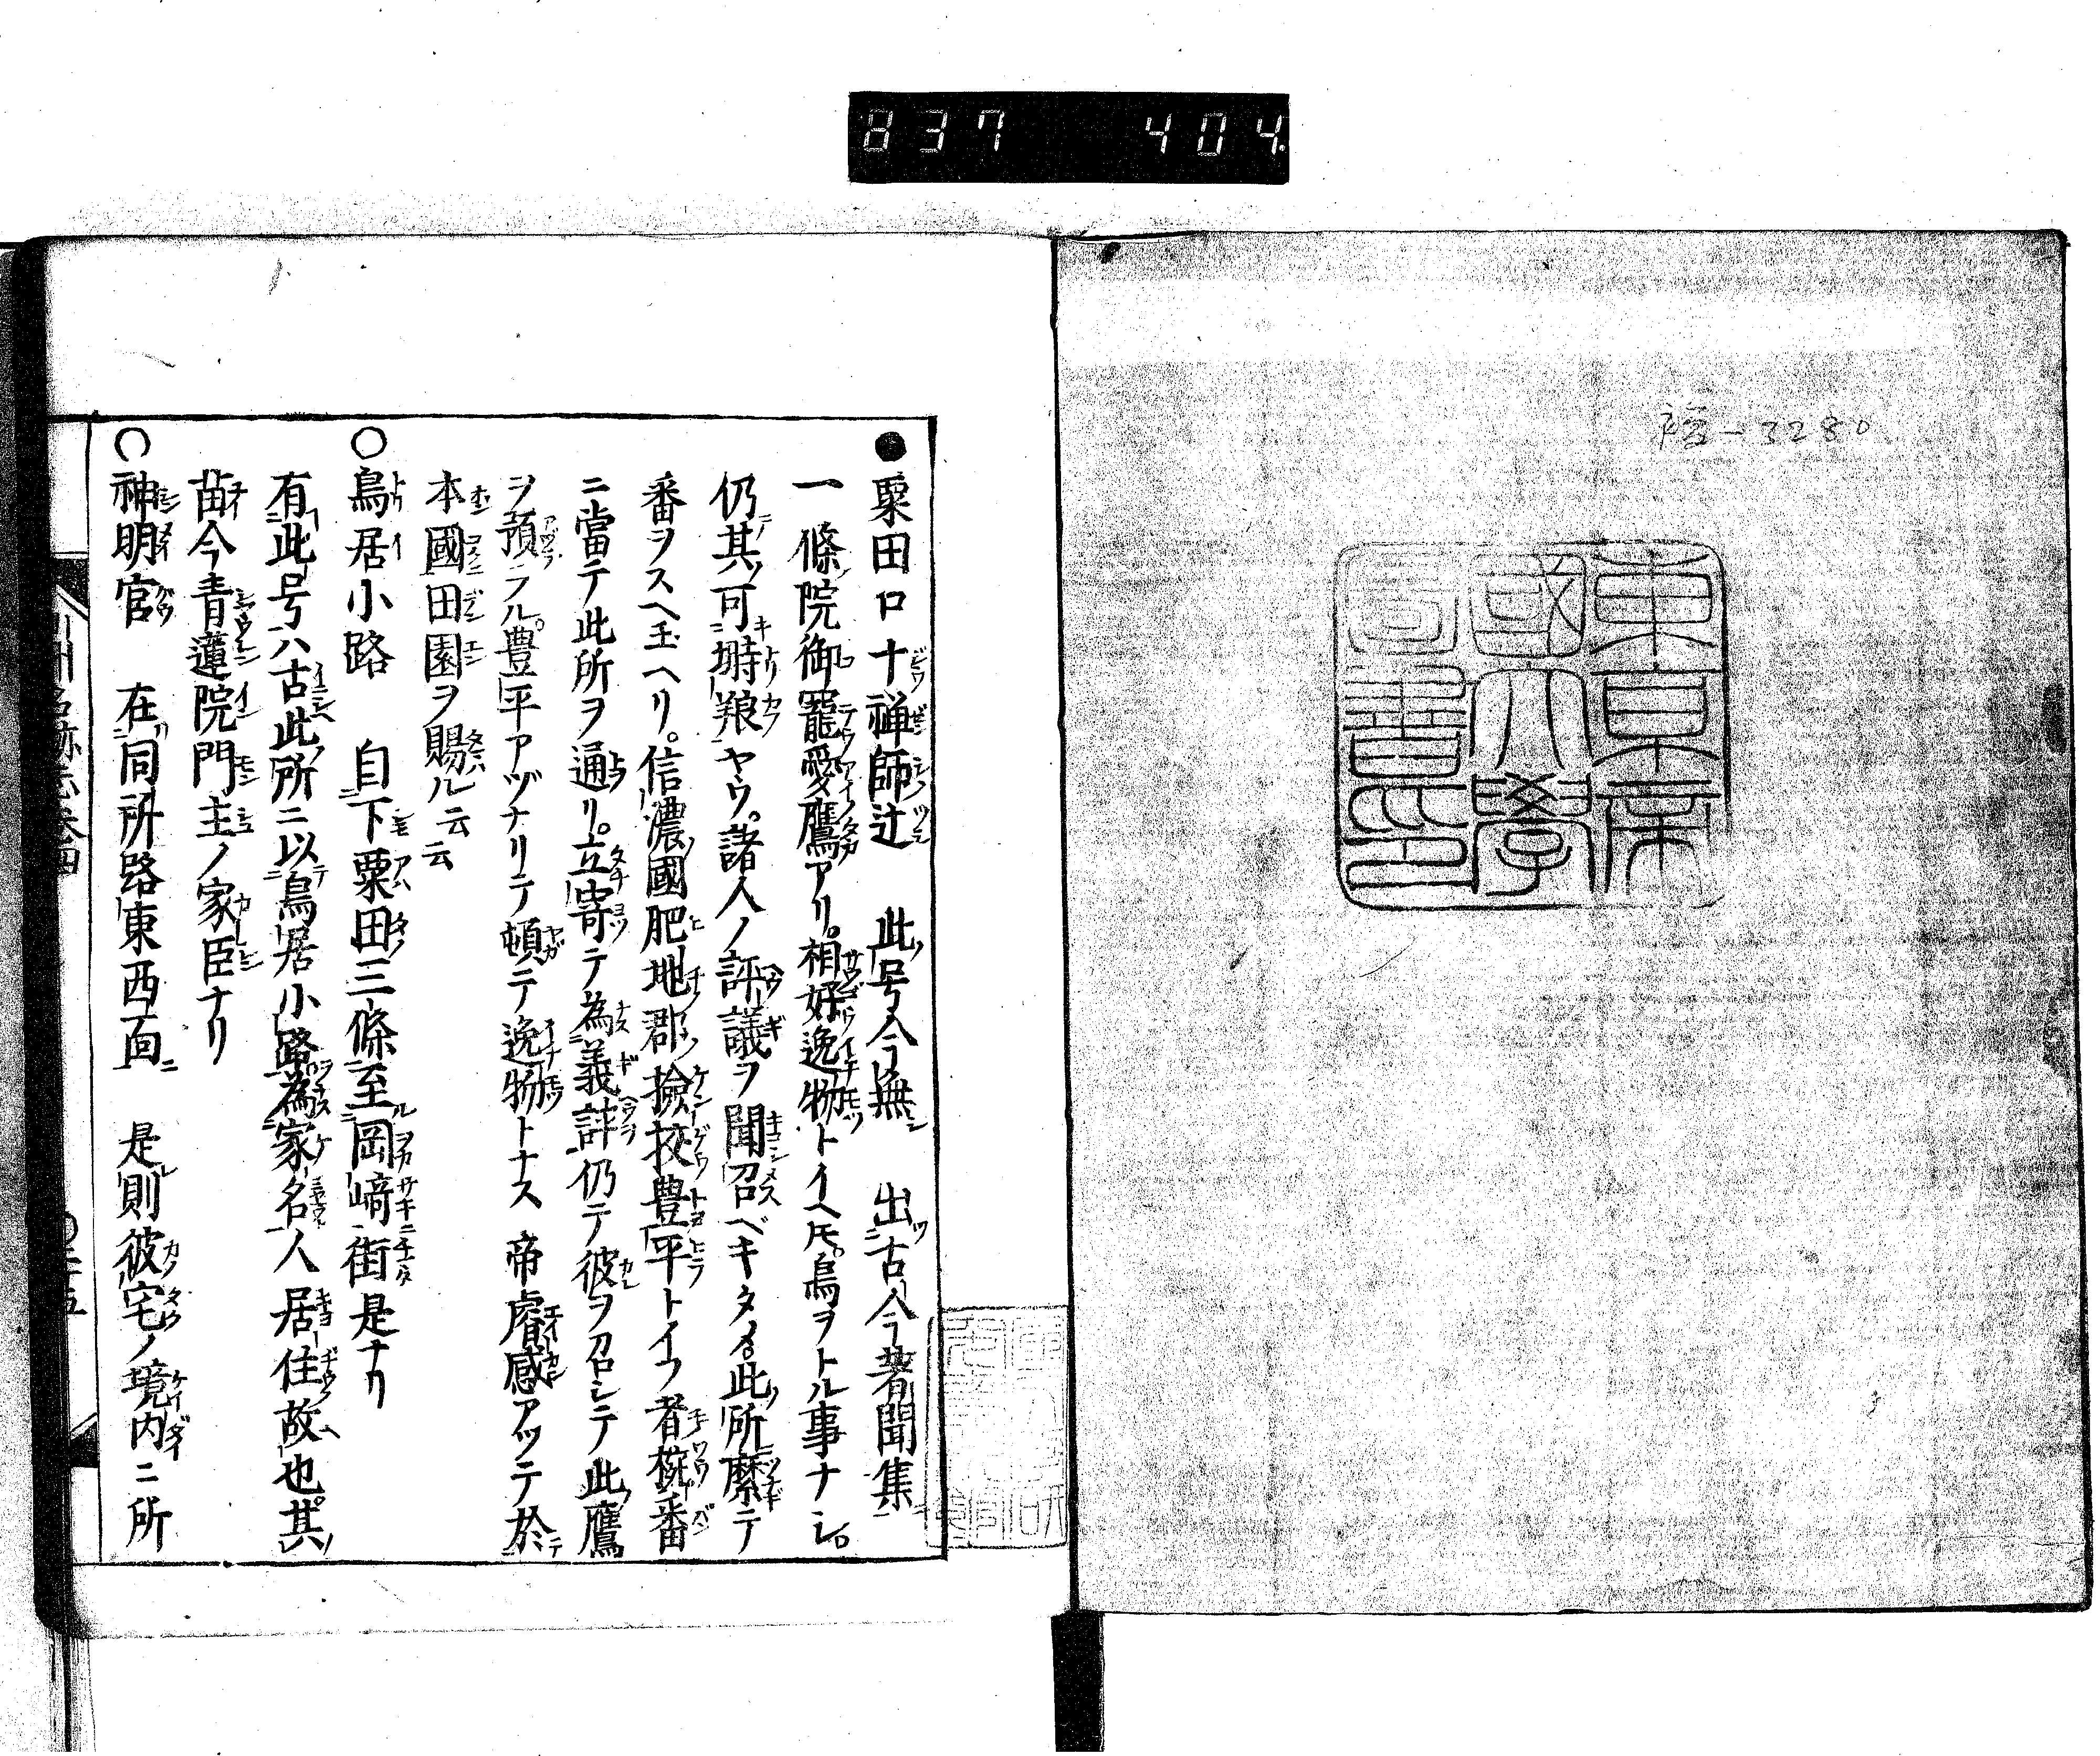 837 404
3280
東京帝
國大學
圖書印
●粟田口十禅師辻　此号今無　出古今著聞集
一條院御寵愛鷹アリ。相好逸物トイヘ𪜈。鳥ヲトル事ナシ。
仍其可塒㺜ヤウ。諸人ノ評議ヲ聞召ベキタメ。此所縻テ
番ヲスヘ玉ヘリ。信濃國肥地郡撿挍豊平トイフ者椀番
ニ當テ此所ヲ通リ。立寄テ為義誹仍テ彼ヲ召シテ此鷹
ヲ預ラル。豊平アヅナリテ頓テ逸物トナス帝睿感アツテ於
本國田園ヲ賜ル云云
○鳥居小路　自下粟田三條至岡﨑街是ナリ
有此号ハ古此所ニ以鳥居小路為家名人居住故也。其
苗今青蓮院門主ノ家臣ナリ
○神明宮　在同所路東西面　是則彼宅ノ境内ニ所